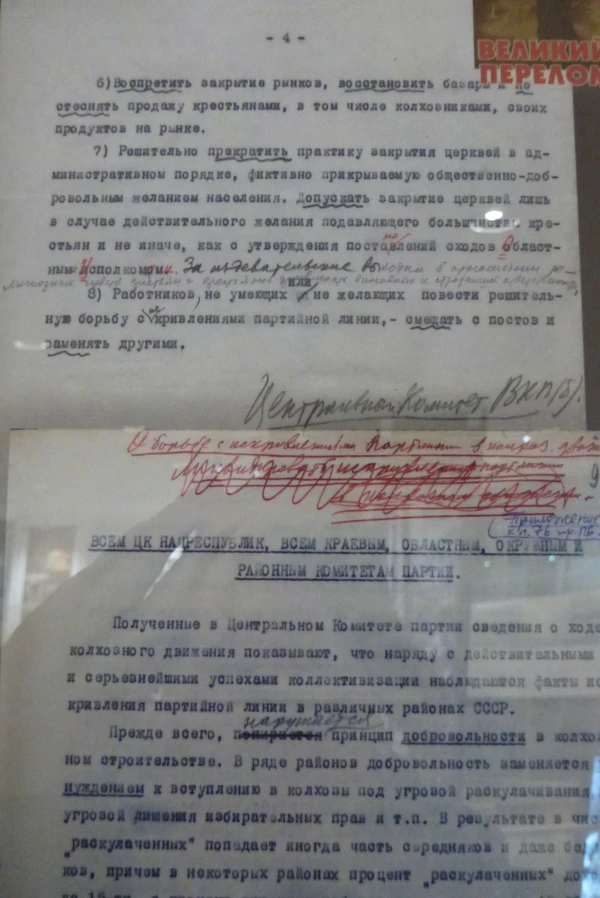 - 4 -
ВЕЛИКИЙ
ПЕРЕЛОМ
6) Воспретить закрытие рынков, восстановить базары и не
стеснять продажу крестьянами, в том числе колхозниками, своих
продуктов на рынке.
7) Решительно прекратить практику закрытия церквей в ад-
министративном порядке, фиктивно прикрываемую общественно-доб-
ровольным желанием населения. Допускать закрытие церквей лишь
в случае действительного желания подавляющего большинства кре-
стьян и не иначе, как с утверждения постановлений сходов област-
ными исполкомами. За издевательские выходки в отношении
или
8) Работников, не умеющих не желающих повести решитель-
ную борьбу с искривлениями партийной линии,- смещать с постов и
заменять другими.
Центральный Комитет ВКП(б).
О борьбе с искривлениями партлинии в колхоз. движ
9
Приложение
к п. 76 пр. ПБ
ВСЕМ ЦК НАЦРЕСПУБЛИК, ВСЕМ КРАЕВЫМ, ОБЛАСТНЫМ, ОКРУЖНЫМ И
РАЙОННЫМ КОМИТЕТАМ ПАРТИИ.
Полученные в Центральном Комитете партии сведения о ходе
колхозного движения показывают, что наряду с действительными
и серьезнейшими успехами коллективизации наблюдаются факты ис
кривления партийной линии в различных районах СССР.
нарушается
Прежде всего, попирается принцип добровольности в колхоз
ном строительстве. В ряде районов добровольность заменяется
нуждением к вступлению в колхозы под угрозой раскулачивания,
угрозой лишения избирательных прав и т.п. В результате в чис
"раскулаченных" попадает иногда часть середняков и даже бед
ков, причем в некоторых районах процент "раскулаченных" дох